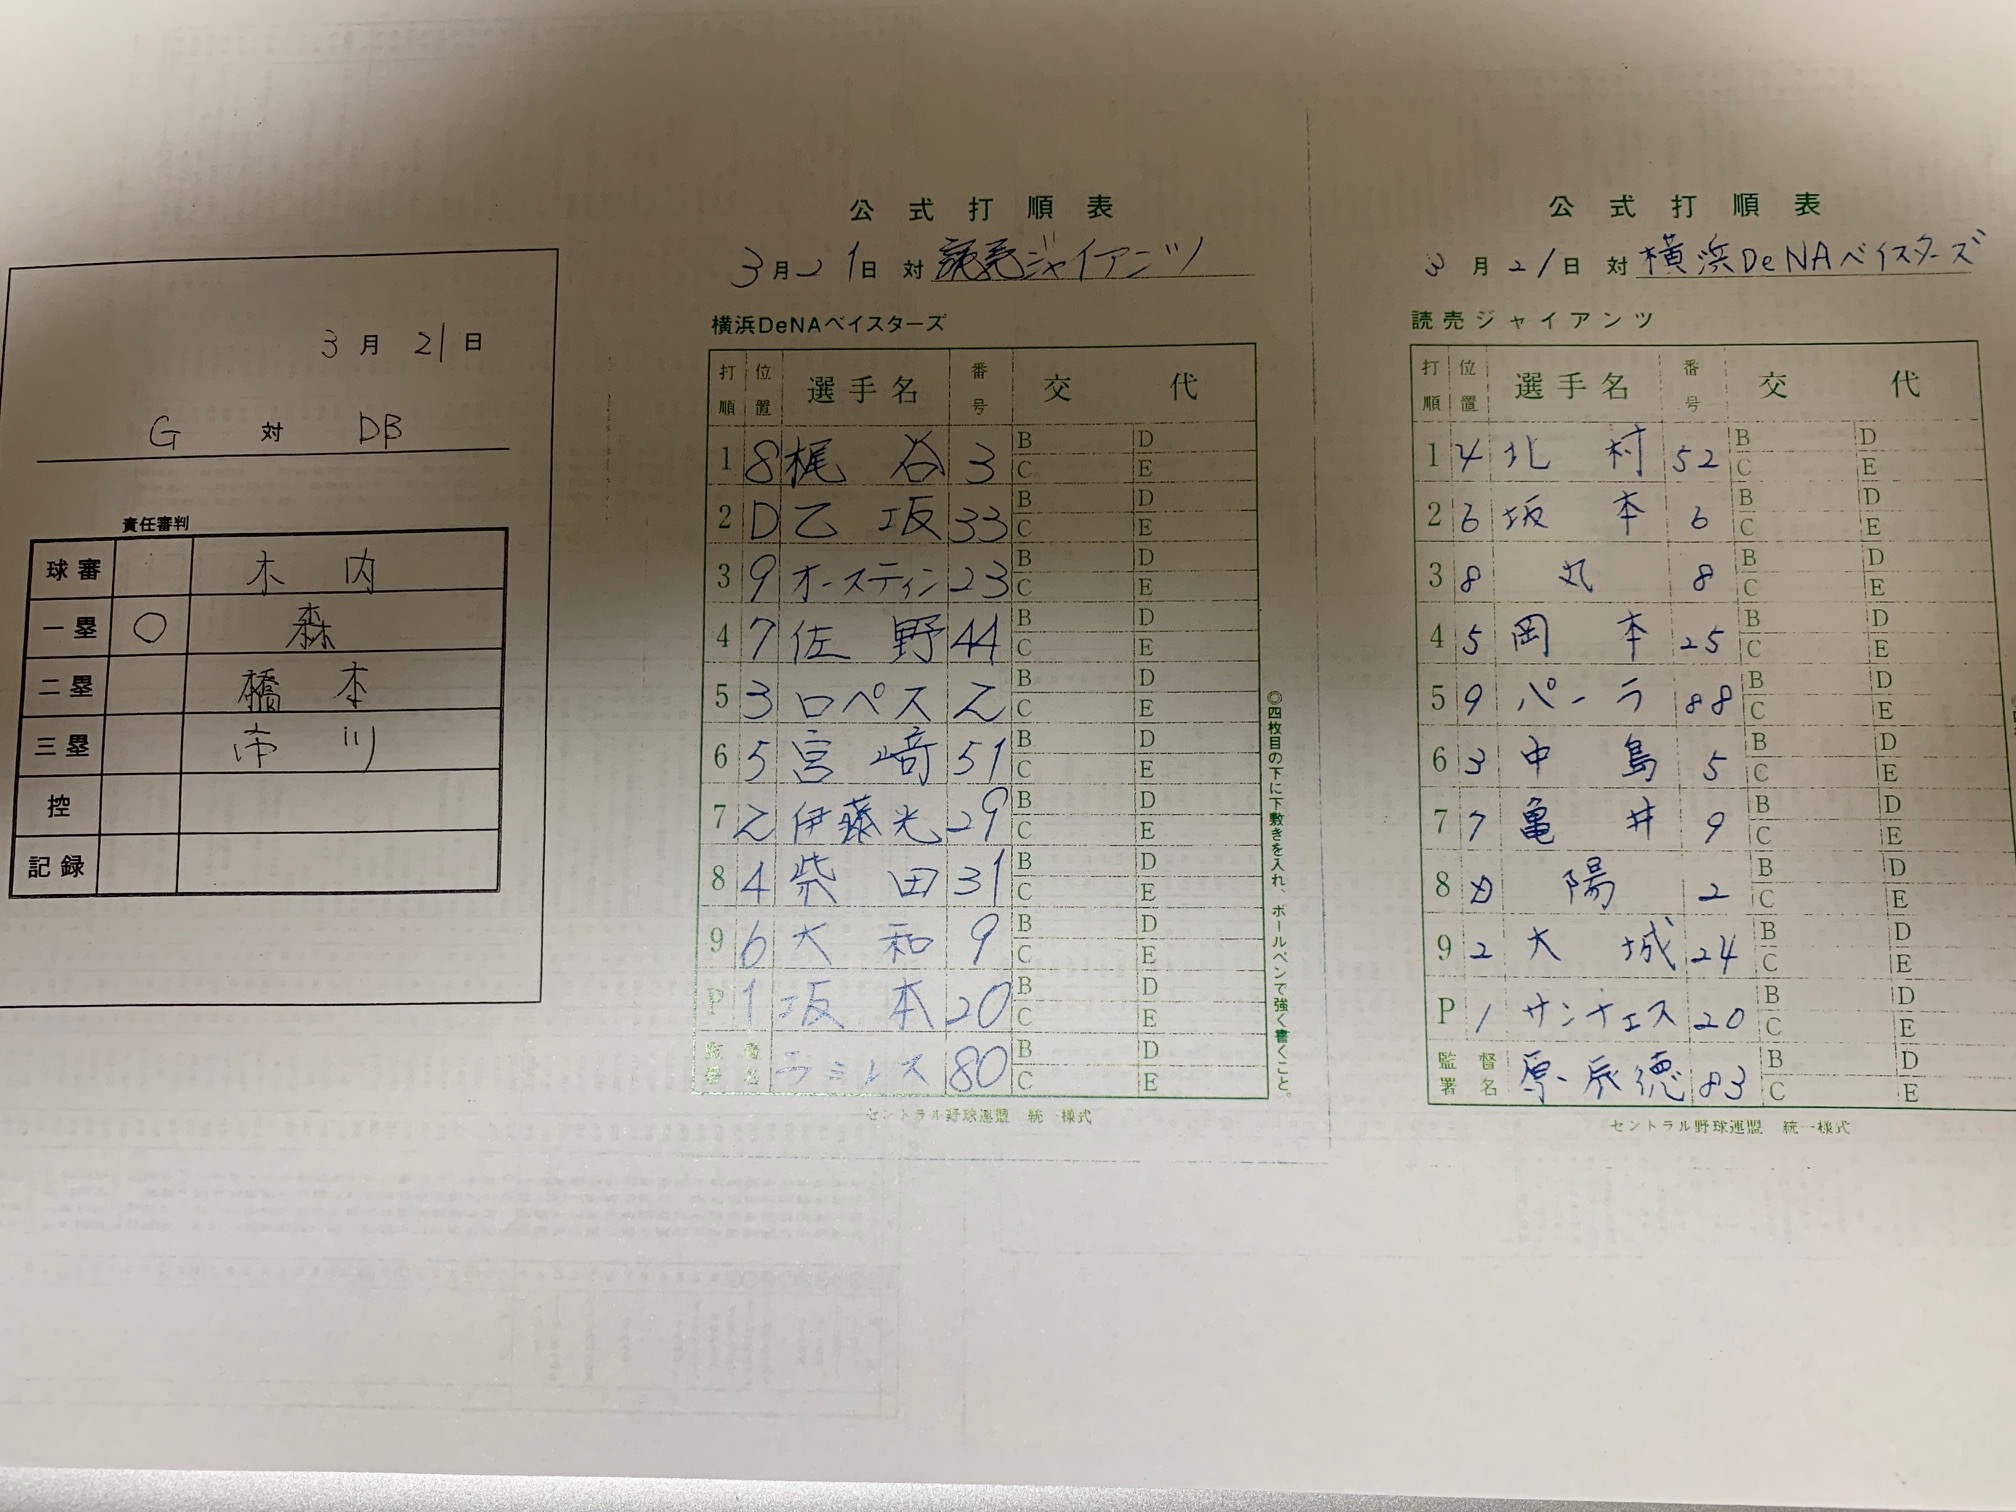 3月21日
G 対 DB
責任審判
球審 木内
一塁 ○ 森
二塁 橋本
三塁 市川
控
記録
公式打順表
3月21日 対 読売ジャイアンツ
横浜DeNAベイスターズ
打順 位置 選手名 番号 交代
1 8 梶谷 3 B D C E
2 D 乙坂 33 B D C E
3 9 オースティン 23 B D C E
4 7 佐野 44 B D C E
5 3 ロペス 2 B D C E
6 5 宮﨑 51 B D C E
7 2 伊藤光 29 B D C E
8 4 柴田 31 B D C E
9 6 大和 9 B D C E
P 1 坂本 20 B D C E
監督署名 ラミレス 80 B D C E
◎四枚目の下に下敷きを入れ、ボールペンで強く書くこと。
セントラル野球連盟 統一様式
公式打順表
3月21日 対 横浜DeNAベイスターズ
読売ジャイアンツ
打順 位置 選手名 番号 交代
1 4 北村 52 B D C E
2 6 坂本 6 B D C E
3 8 丸 8 B D C E
4 5 岡本 25 B D C E
5 9 パーラ 88 B D C E
6 3 中島 5 B D C E
7 7 亀井 9 B D C E
8 D 陽 2 B D C E
9 2 大城 24 B D C E
P 1 サンチェス 20 B D C E
監督署名 原辰徳 83 B D C E
セントラル野球連盟 統一様式